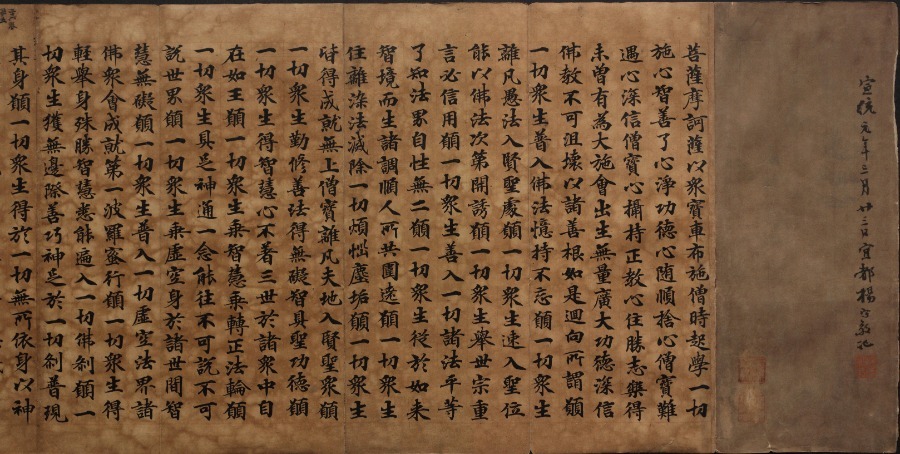 宣統元年三月廿三日宜都楊守敬記
菩薩摩訶薩以衆寶車布施僧時起學一切
施心智善了心淨功德心隨順捨心僧寶難
遇心深信僧寶心攝持正教心住勝志樂得
未曾有為大施會出生無量廣大功德深信
佛教不可沮壞以諸善根如是迴向所謂願
一切衆生普入佛法憶持不忘願一切衆生
離凡愚法入賢聖處願一切衆生速入聖位
能以佛法次第開誘願一切衆生舉世宗重
言必信用願一切衆生善入一切諸法平等
了知法界自性無二願一切衆生從於如來
智境而生諸調順人所共圍遶願一切衆生
住離染法滅除一切煩惱塵垢願一切衆生
皆得成就無上僧寶離凡夫地入賢聖衆願
一切衆生勤修善法得無礙智具聖功德願
一切衆生得智慧心不著三世於諸衆中自
在如王願一切衆生乘智慧乘轉正法輪願
一切衆生具足神通一念能往不可說不可
說世界願一切衆生乘虛空身於諸世間智
慧無礙願一切衆生普入一切虛空法界諸
佛衆會成就第一波羅蜜行願一切衆生得
輕舉身殊勝智慧悉能遍入一切佛剎願一
切衆生獲無邊際善巧神足於一切剎普現
其身願一切衆生得於一切無所依身以神